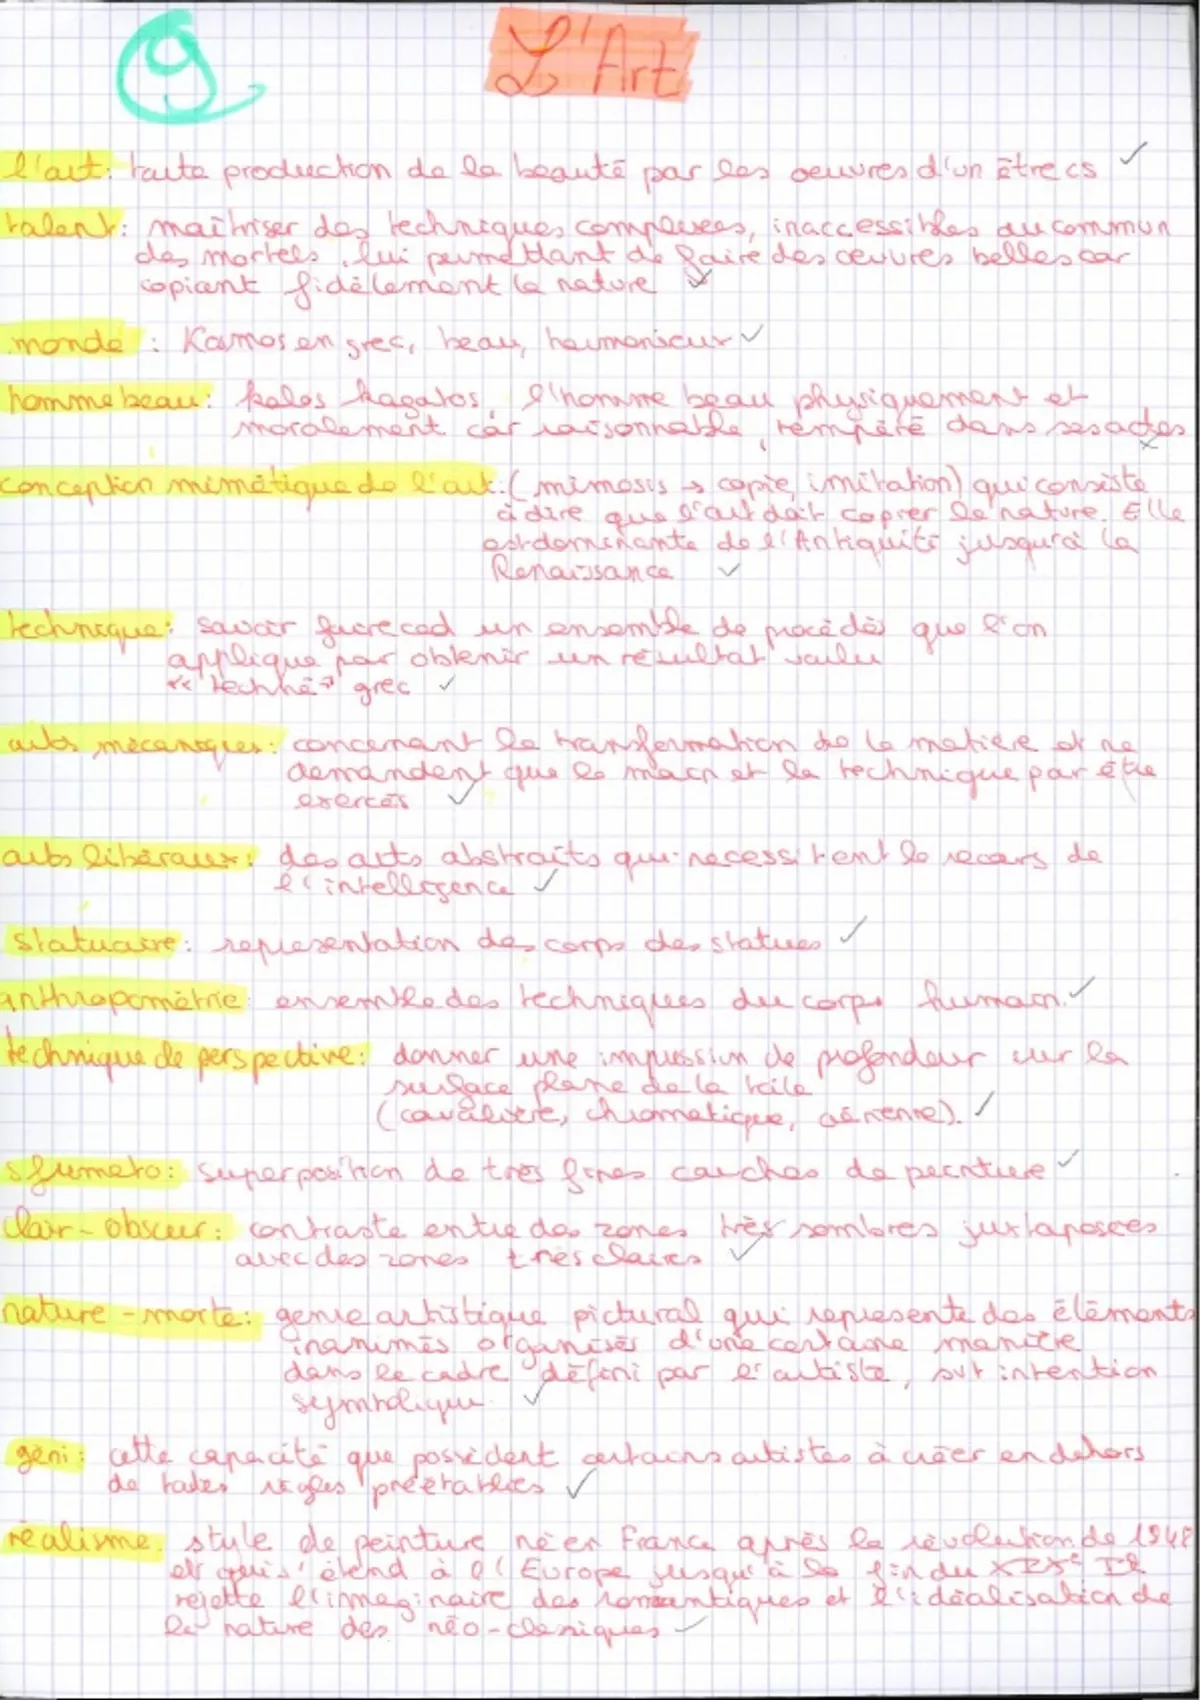 9
L'Art
l'art: toute production de la beauté par les oeuvres d'un être cs ✓
talent: maîtriser des techniques complexes, inaccessibles au commun
des mortels, lui permettant de faire des oeuvres belles car
copiant fidèlement la nature
monde : Kosmos en grec, beau, harmonieux ✓
homme beau: kalos kagatos, l'homme beau physiquement et
moralement car raisonnable, tempéré dans ses actes
conception mimétique de l'art: (mimesis → copie, imitation) qui consiste
à dire que l'art doit copier la nature. Elle
est dominante de l'Antiquité jusqu'à la
Renaissance ✓
technique: savoir faire cad un ensemble de procédés que l'on
applique par obtenir un résultat voulu
"techné" grec ✓
arts mécaniques: concernant la transformation de la matière et ne
demandent que la main et la technique par être
exercés ✓
arts libéraux: des arts abstraits qui necessitent le recours de
l'intelligence ✓
statuaire: representation des corps des statues ✓
anthropométrie: ensemble des techniques du corps humain. ✓
technique de perspective: donner une impression de profondeur sur la
surface plane de la toile
(cavalière, chromatique, aérienne). ✓
sfumato: superposition de très fines couches de peinture ✓
clair-obscur: contraste entre des zones très sombres juxtaposées
avec des zones très claires ✓
nature-morte: genre artistique pictural qui represente des éléments
inanimés organisés d'une certaine manière
dans le cadre défini par l'artiste, intention
symbolique. ✓
géni: cette capacité que possèdent certains artistes à créer en dehors
de toutes règles préétablies ✓
réalisme: style de peinture né en France après la révolution de 1948
et qui s'étend à l'Europe jusqu'à la fin du XIXe Il
rejette l'imaginaire des romantiques et l'idéalisation de
la nature des néo-classiques ✓